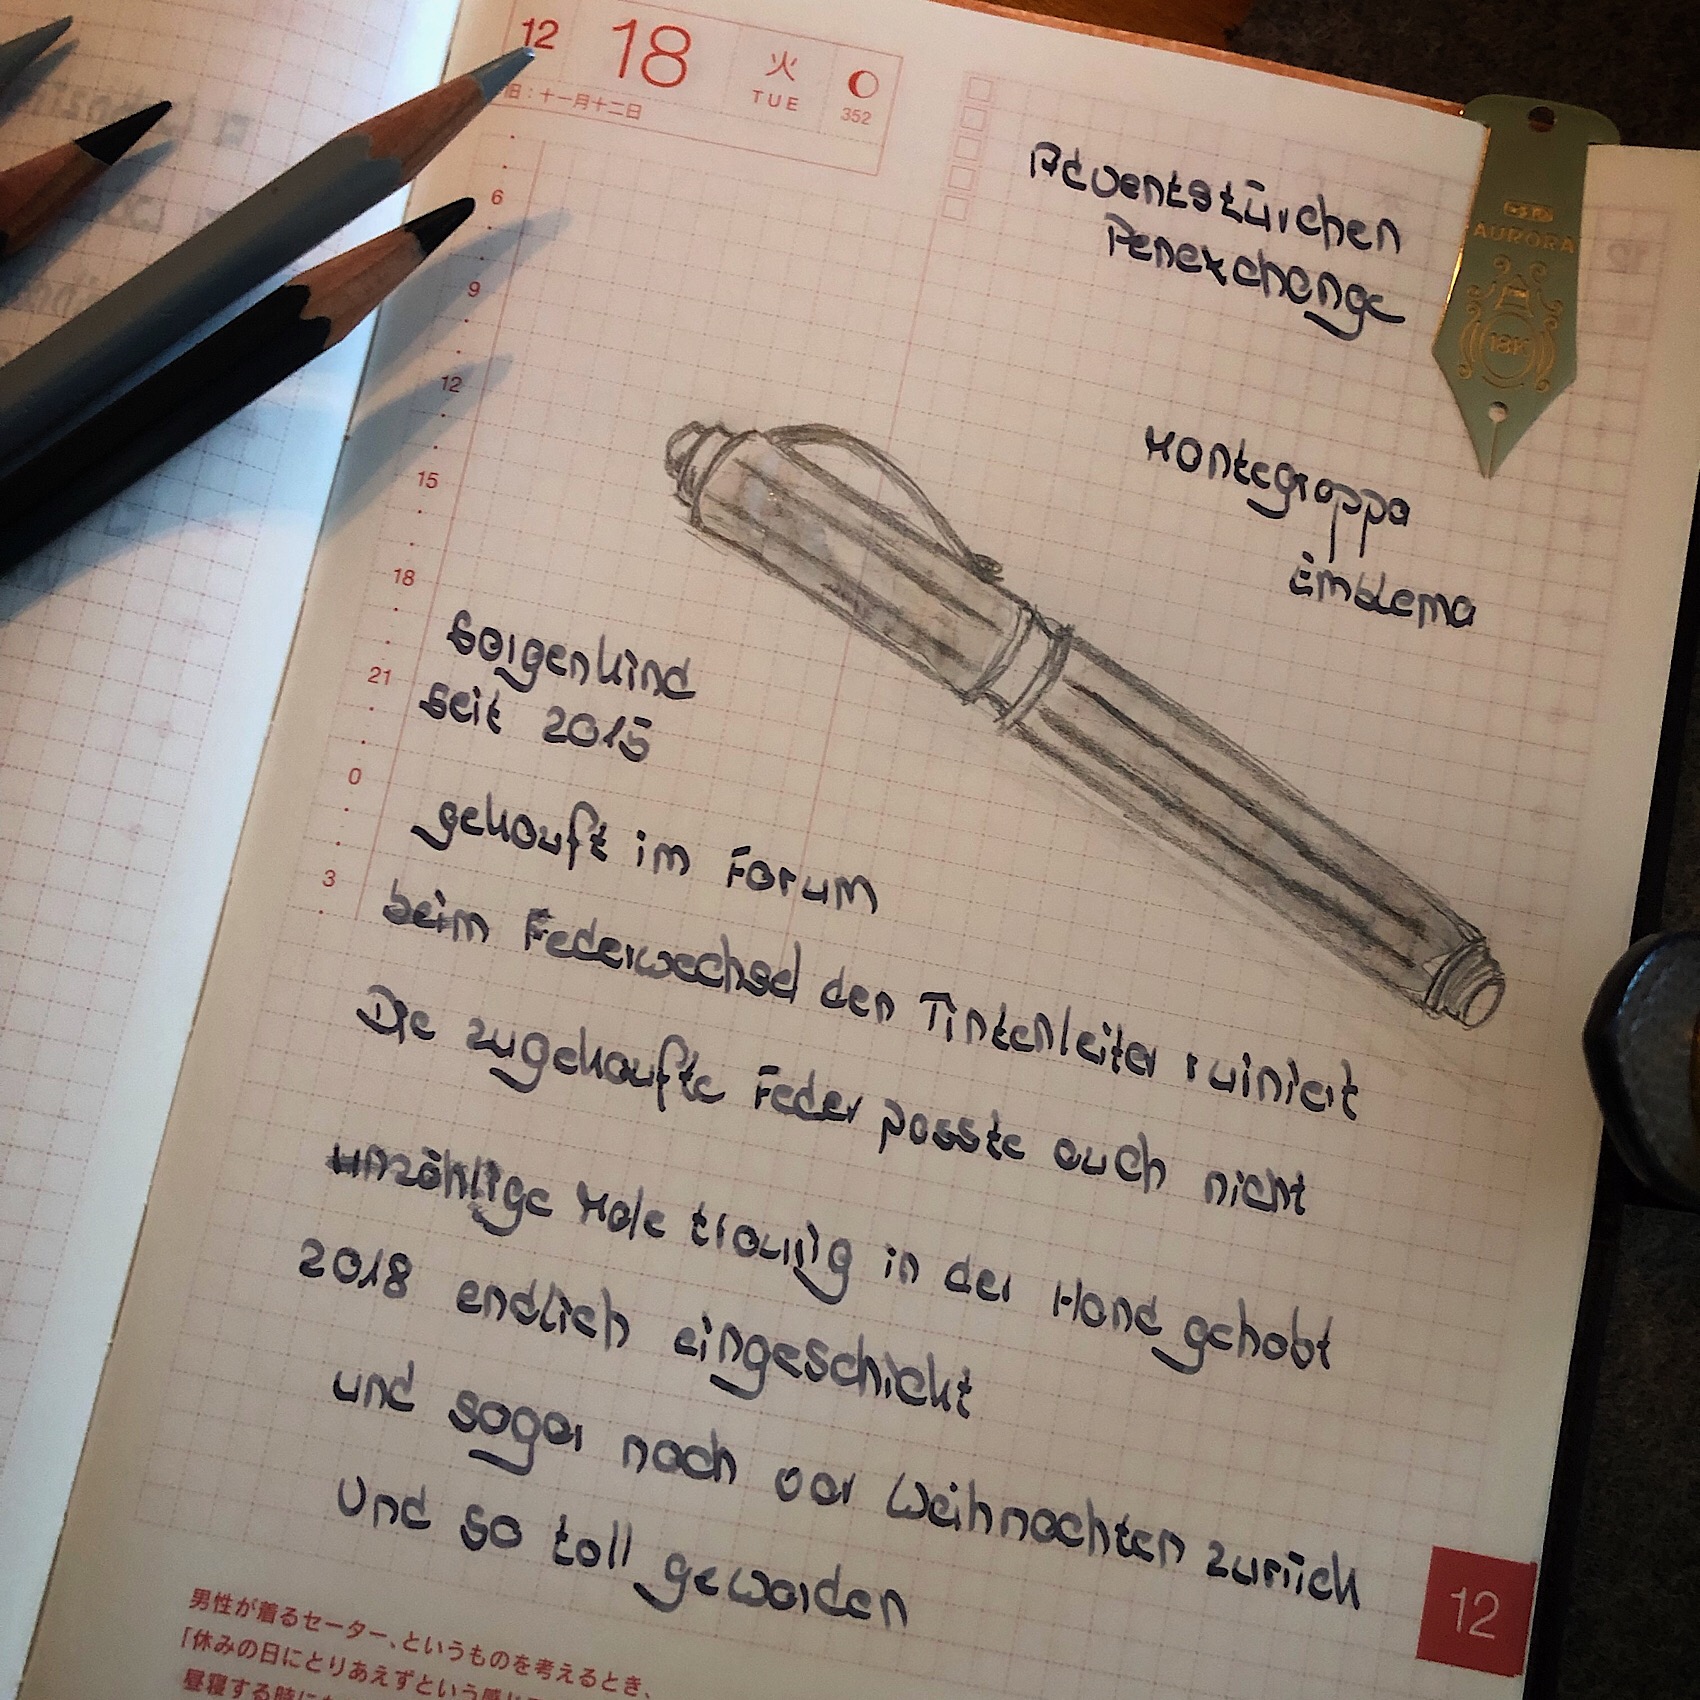 12 18 火 TUE 352
旧:十一月十二日
6
9
12
15
18
21
0
3
Adventstürchen
Penexchange
AURORA
18K
Montegrappa
Emblema
Sorgenkind
seit 2015
gekauft im Forum
beim Federwechsel den Tintenleiter ruiniert
Die zugekaufte Feder passte auch nicht
unzählige Male traurig in der Hand gehabt
2018 endlich eingeschickt
und sogar noch vor Weihnachten zurück
Und so toll geworden
12
男性が着るセーター、というものを考えるとき、
「休みの日にとりあえずという感じ
昼寝する時に